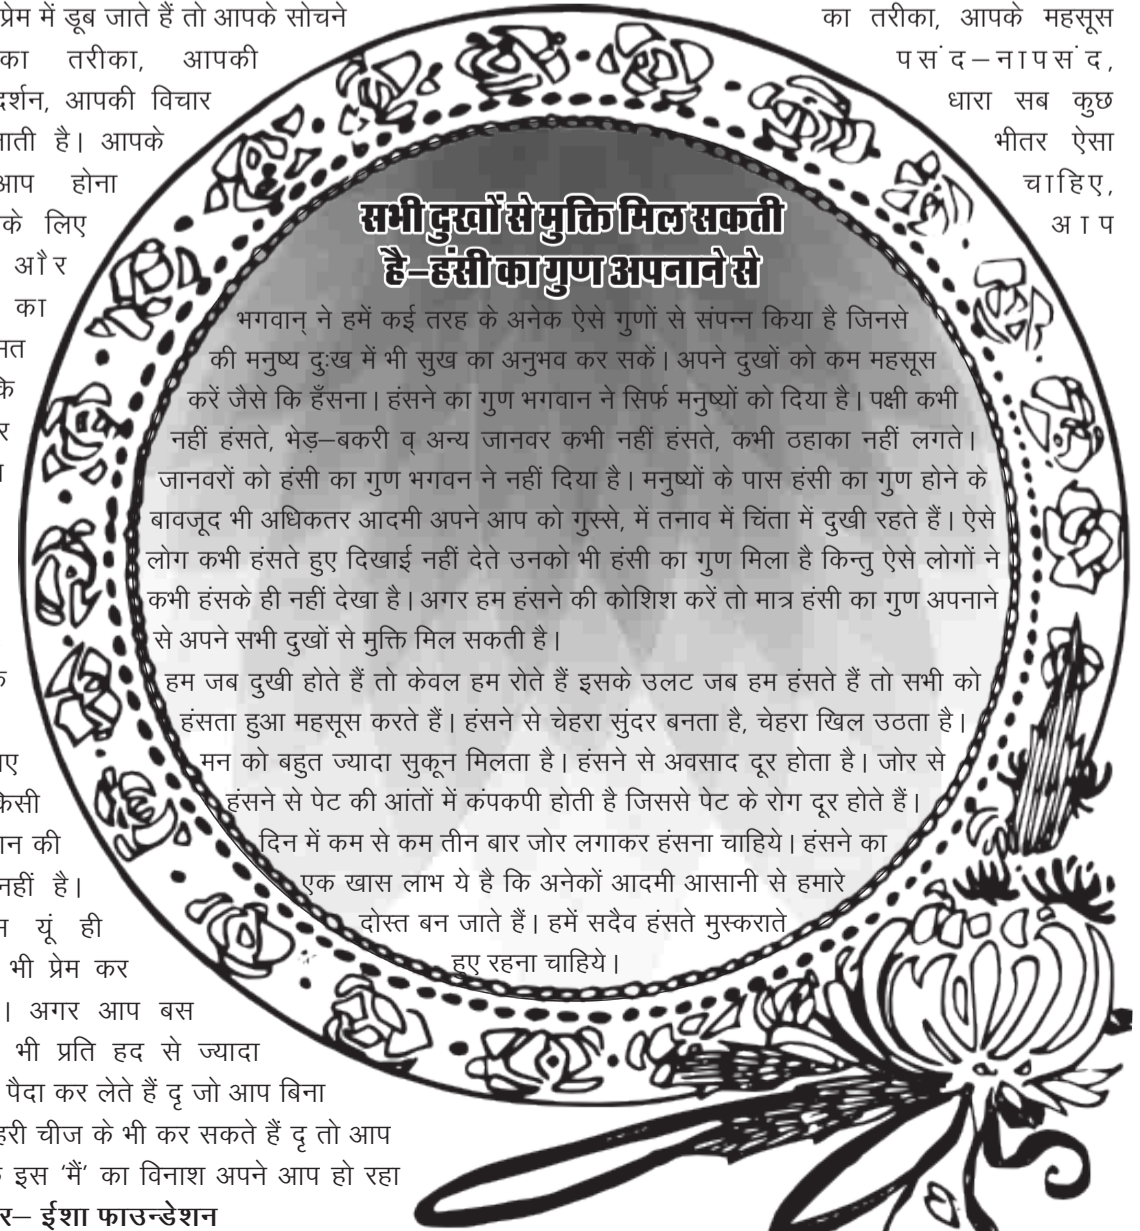 प्रेम में डूब जाते हैं तो आपके सोचने
का तरीका, आपकी
दर्शन, आपकी विचार
जाती है। आपके
आप होना
के लिए
और
का
कि
किसी
की
नहीं है।
यूं ही
भी प्रेम कर
। अगर आप बस
भी प्रति हद से ज्यादा
पैदा कर लेते हैं दृ जो आप बिना
चीज के भी कर सकते हैं दृ तो आप
इस ‘मैं’ का विनाश अपने आप हो रहा
– ईशा फाउन्डेशन
का तरीका, आपके महसूस
पसंद–नापसंद,
धारा सब कुछ
भीतर ऐसा
चाहिए,
आप
सभी दुखों से मुक्ति मिल सकती
है–हंसी का गुण अपनाने से
भगवान् ने हमें कई तरह के अनेक ऐसे गुणों से संपन्न किया है जिनसे
की मनुष्य दुःख में भी सुख का अनुभव कर सकें। अपने दुखों को कम महसूस
करें जैसे कि हँसना। हंसने का गुण भगवान ने सिर्फ मनुष्यों को दिया है। पक्षी कभी
नहीं हंसते, भेड़–बकरी व् अन्य जानवर कभी नहीं हंसते, कभी ठहाका नहीं लगते।
जानवरों को हंसी का गुण भगवन ने नहीं दिया है। मनुष्यों के पास हंसी का गुण होने के
बावजूद भी अधिकतर आदमी अपने आप को गुस्से, में तनाव में चिंता में दुखी रहते हैं। ऐसे
लोग कभी हंसते हुए दिखाई नहीं देते उनको भी हंसी का गुण मिला है किन्तु ऐसे लोगों ने
कभी हंसके ही नहीं देखा है। अगर हम हंसने की कोशिश करें तो मात्र हंसी का गुण अपनाने
से अपने सभी दुखों से मुक्ति मिल सकती है।
हम जब दुखी होते हैं तो केवल हम रोते हैं इसके उलट जब हम हंसते हैं तो सभी को
हंसता हुआ महसूस करते हैं। हंसने से चेहरा सुंदर बनता है, चेहरा खिल उठता है।
मन को बहुत ज्यादा सुकून मिलता है। हंसने से अवसाद दूर होता है। जोर से
हंसने से पेट की आंतों में कंपकपी होती है जिससे पेट के रोग दूर होते हैं।
दिन में कम से कम तीन बार जोर लगाकर हंसना चाहिये। हंसने का
एक खास लाभ ये है कि अनेकों आदमी आसानी से हमारे
दोस्त बन जाते हैं। हमें सदैव हंसते मुस्कराते
हुए रहना चाहिये।